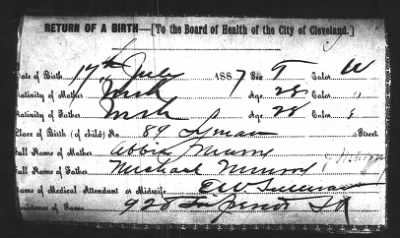 RETURN OF A BIRTH—[To the Board of Health of the City of Cleveland.]
Date of Birth 17th July 1887 Sex F Color W
Nativity of Mother Age 28 Color "
Nativity of Father Age 28 Color "
Place of Birth (of child) No. 89 Lyman Street
Full Name of Mother Abbie
Full Name of Father Michael
Name of Medical Attendant or Midwife EW Sullivan
Residence of Same 928 St